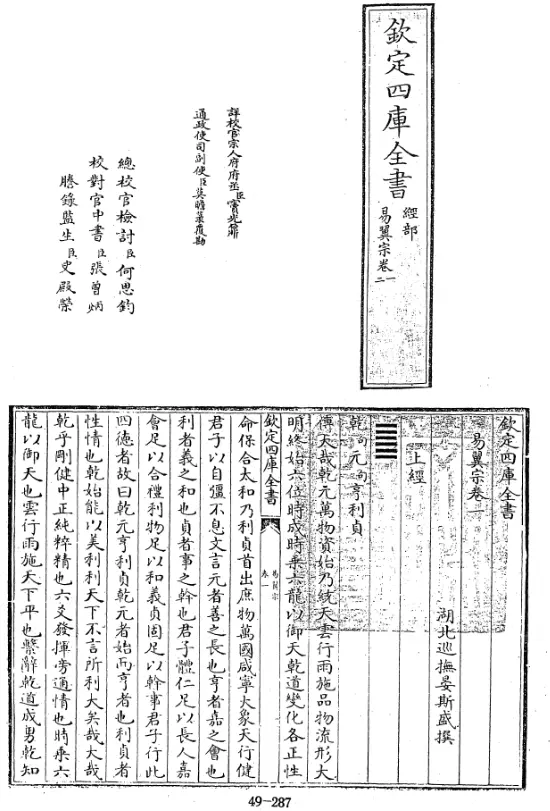 欽定四庫全書
經部
易翼宗卷一
二
詳校官宗人府府丞臣竇光鼐
通政使司副使臣莫瞻菉覆勘
總校官檢討臣何思鈞
校對官中書臣張曾炳
謄錄監生臣史殿榮
欽定四庫全書
易翼宗卷一
湖北巡撫晏斯盛撰
上經
乾句元句亨利貞
傳大哉乾元萬物資始乃統天雲行雨施品物流形大
明終始六位時成時乘六龍以御天乾道變化各正性
欽定四庫全書
易翼宗
卷一
命保合太和乃利貞首出庶物萬國咸寧大象天行健
君子以自彊不息文言元者善之長也亨者嘉之會也
利者義之和也貞者事之幹也君子體仁足以長人嘉
會足以合禮利物足以和義貞固足以幹事君子行此
四德者故曰乾元亨利貞乾元者始而亨者也利貞者
性情也乾始能以美利利天下不言所利大矣哉大哉
乾乎剛健中正純粹精也六爻發揮旁通情也時乘六
龍以御天也雲行雨施天下平也繫辭乾道成男乾知
49-287